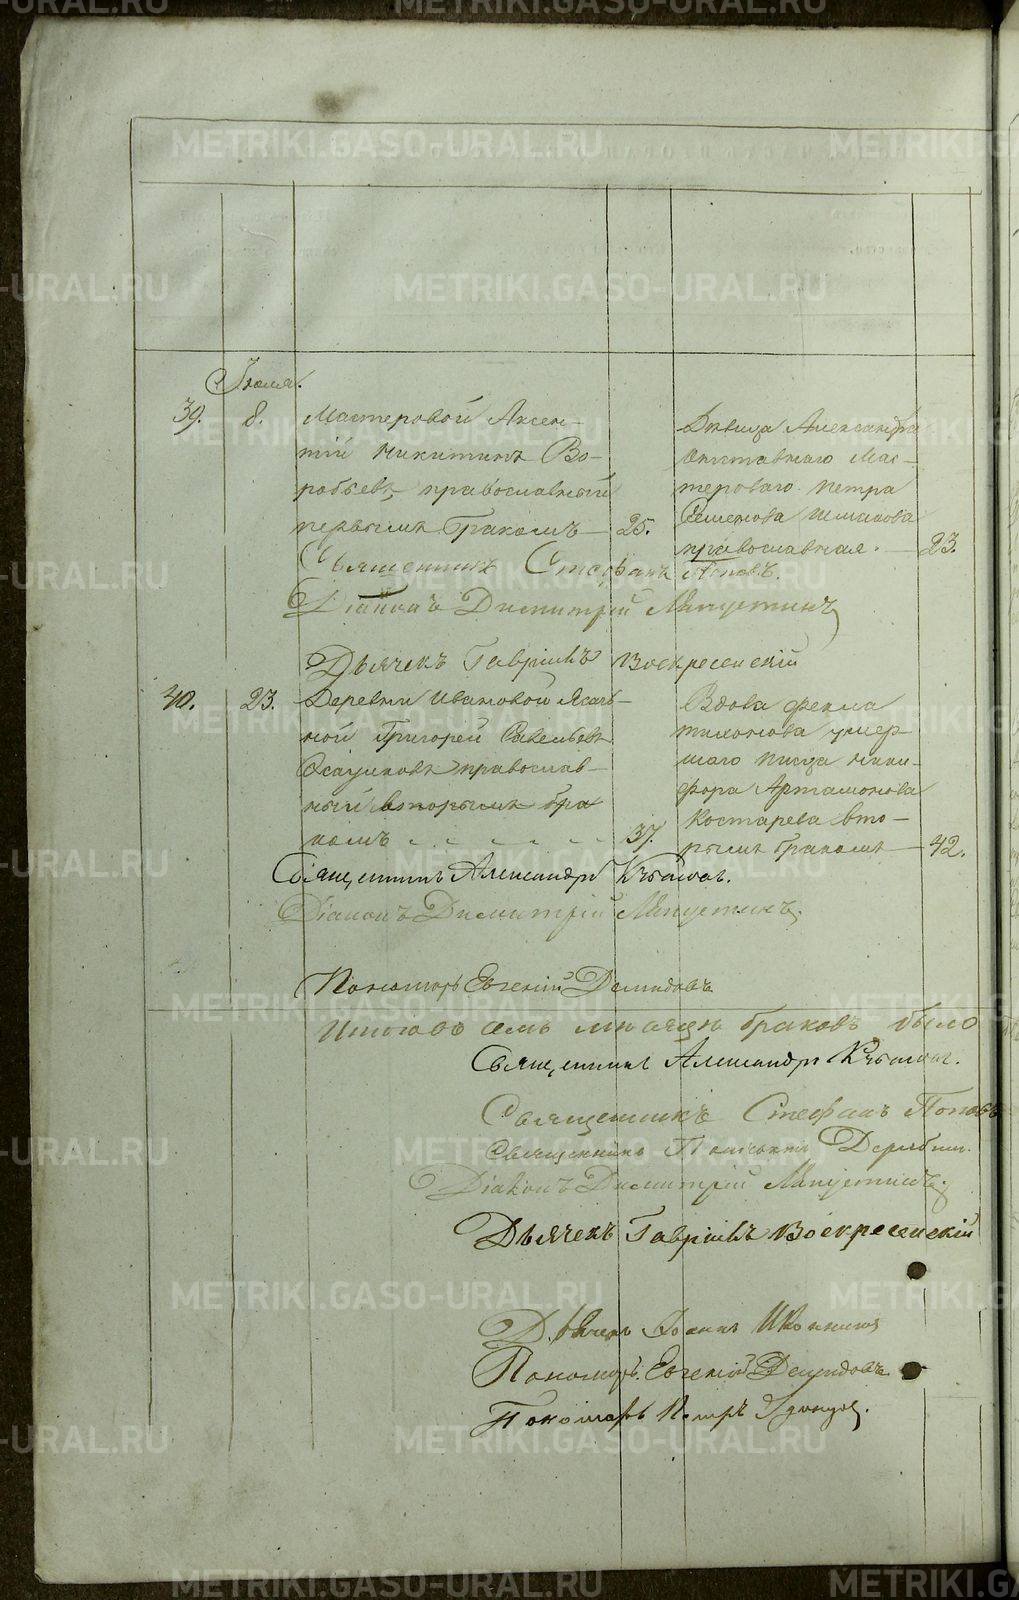 Іюля.
39. 8. Мастеровой Аксен-
тій Никитинъ Во-
робьевъ, православный
первымъ бракомъ — 25.
Дѣвица Александра
отставнаго Мас-
тероваго Петра
Семенова
православная. — 23.
Священникъ Стефанъ Поповъ.
Діаконъ Димитрій Ляпустинъ
Дьячекъ Гавріилъ Воскресенскій
40. 23. Деревни Ивановой Ясач-
ной Григорей Савельевъ
православ-
ный вторымъ бра
комъ 37.
Вдова Фекла
умер-
шаго Ники-
фора Артамонова
Костарева вто-
рымъ бракомъ — 42.
Священникъ Александръ
Діаконъ Димитрій Ляпустинъ.
Пономарь Евгеній Демидовъ
Итого въ семъ мѣсяцѣ браковъ было
Священникъ Александръ
Священникъ Стефанъ Поповъ
Священникъ Дерябин.
Діаконъ Димитрій Ляпустинъ.
Дьячекъ Гавріилъ Воскресенскій
Дьячекъ Іоаннъ
Пономарь Евгеній Демидовъ
Пономарь Петръ
METRIKI.GASO-URAL.RU